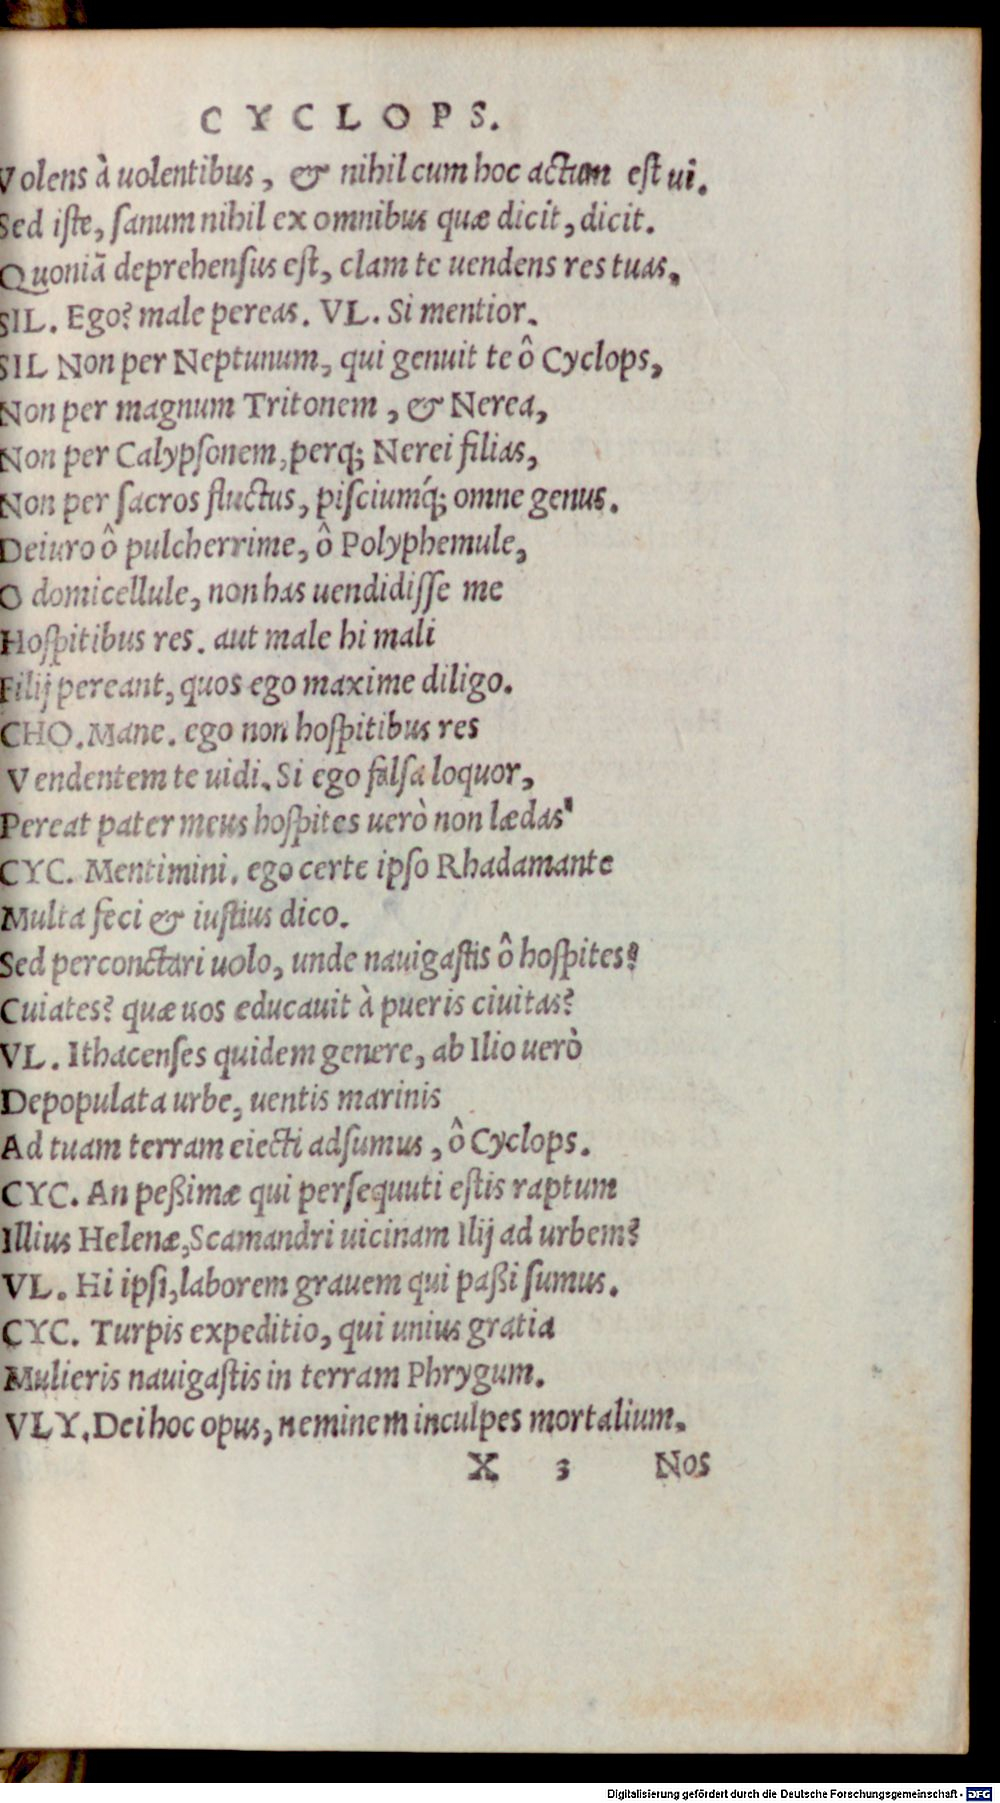 CYCLOPS.
Volens à uolentibus, & nihil cum hoc actum est ui.
Sed iste, sanum nihil ex omnibus quæ dicit, dicit.
Quoniã deprehensus est, clam te uendens res tuas.
SIL. Ego? male pereas. VL. Si mentior.
SIL Non per Neptunum, qui genuit te ô Cyclops,
Non per magnum Tritonem, & Nerea,
Non per Calypsonem, perq; Nerei filias,
Non per sacros fluctus, pisciumq́; omne genus.
Deiuro ô pulcherrime, ô Polyphemule,
O domicellule, non has uendidisse me
Hospitibus res. aut male hi mali
Filij pereant, quos ego maxime diligo.
CHO. Mane. ego non hospitibus res
Vendentem te uidi. Si ego falsa loquor,
Pereat pater meus hospites uerò non lædas
CYC. Mentimini. ego certe ipso Rhadamante
Multa feci & iustius dico.
Sed perconctari uolo, unde nauigastis ô hospites?
Cuiates? quæ uos educauit à pueris ciuitas?
VL. Ithacenses quidem genere, ab Ilio uerò
Depopulata urbe, uentis marinis
Ad tuam terram eiecti adsumus, ô Cyclops.
CYC. An peßimæ qui persequuti estis raptum
Illius Helenæ, Scamandri uicinam Ilij ad urbem?
VL. Hi ipsi, laborem grauem qui paßi sumus.
CYC. Turpis expeditio, qui unius gratia
Mulieris nauigastis in terram Phrygum.
VLY. Dei hoc opus, neminem inculpes mortalium.
X 3 Nos
Digitalisierung gefördert durch die Deutsche Forschungsgemeinschaft - DFG